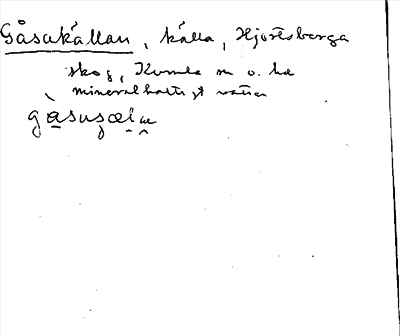 Gåsakällan, källa, Hjortsberga
skog, Kumla sn o. hd
mineralhaltigt vatten
gàsuʂælɐ